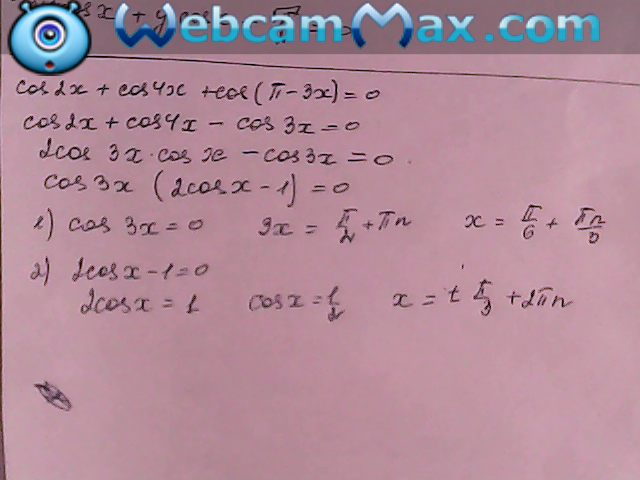 WebcamMax.com
cos2x + cos4x + cos(π-3x)=0
cos2x + cos4x - cos 3x=0
2cos 3x·cos x - cos3x=0.
cos3x (2cosx-1)=0
1) cos 3x=0 3x = π/2 + πn x = π/6 + πn/3
2) 2cosx-1=0
2cosx=1 cosx=1/2 x = ± π/3 + 2πn